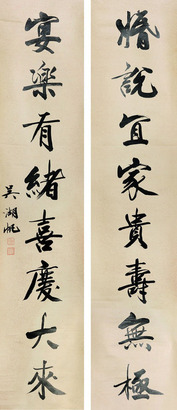 婚說宜家貴壽無極
宴樂有緒喜慶大來
吳湖帆